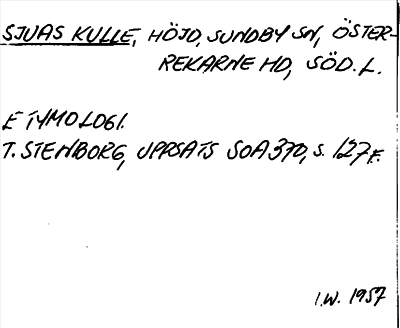 SJUAS KULLE, HÖJD, SUNDBY SN, ÖSTER-
REKARNE HD, SÖD. L.
ETYMOLOGI.
T. STENBORG, UPPSATS SOA 370, S. 127 F.
I.W. 1957